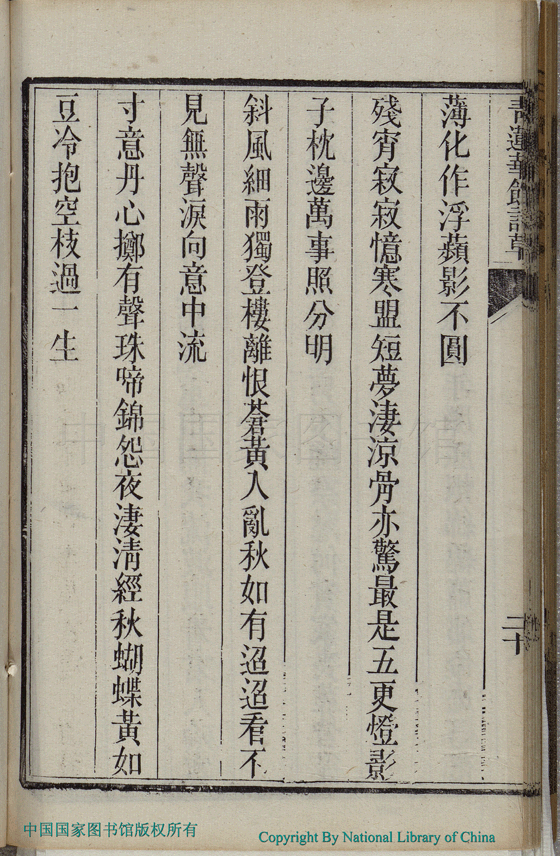 青蓮華館詩草
二十
薄化作浮蘋影不圓
殘宵寂寂憶寒盟短夢淒涼骨亦驚最是五更燈影
子枕邊萬事照分明
斜風細雨獨登樓離恨蒼黃入亂秋如有迢迢看不
見無聲淚向意中流
寸意丹心擲有聲珠啼錦怨夜淒淸經秋蝴蝶黃如
豆冷抱空枝過一生
中国国家图书馆版权所有
Copyright By National Library of China